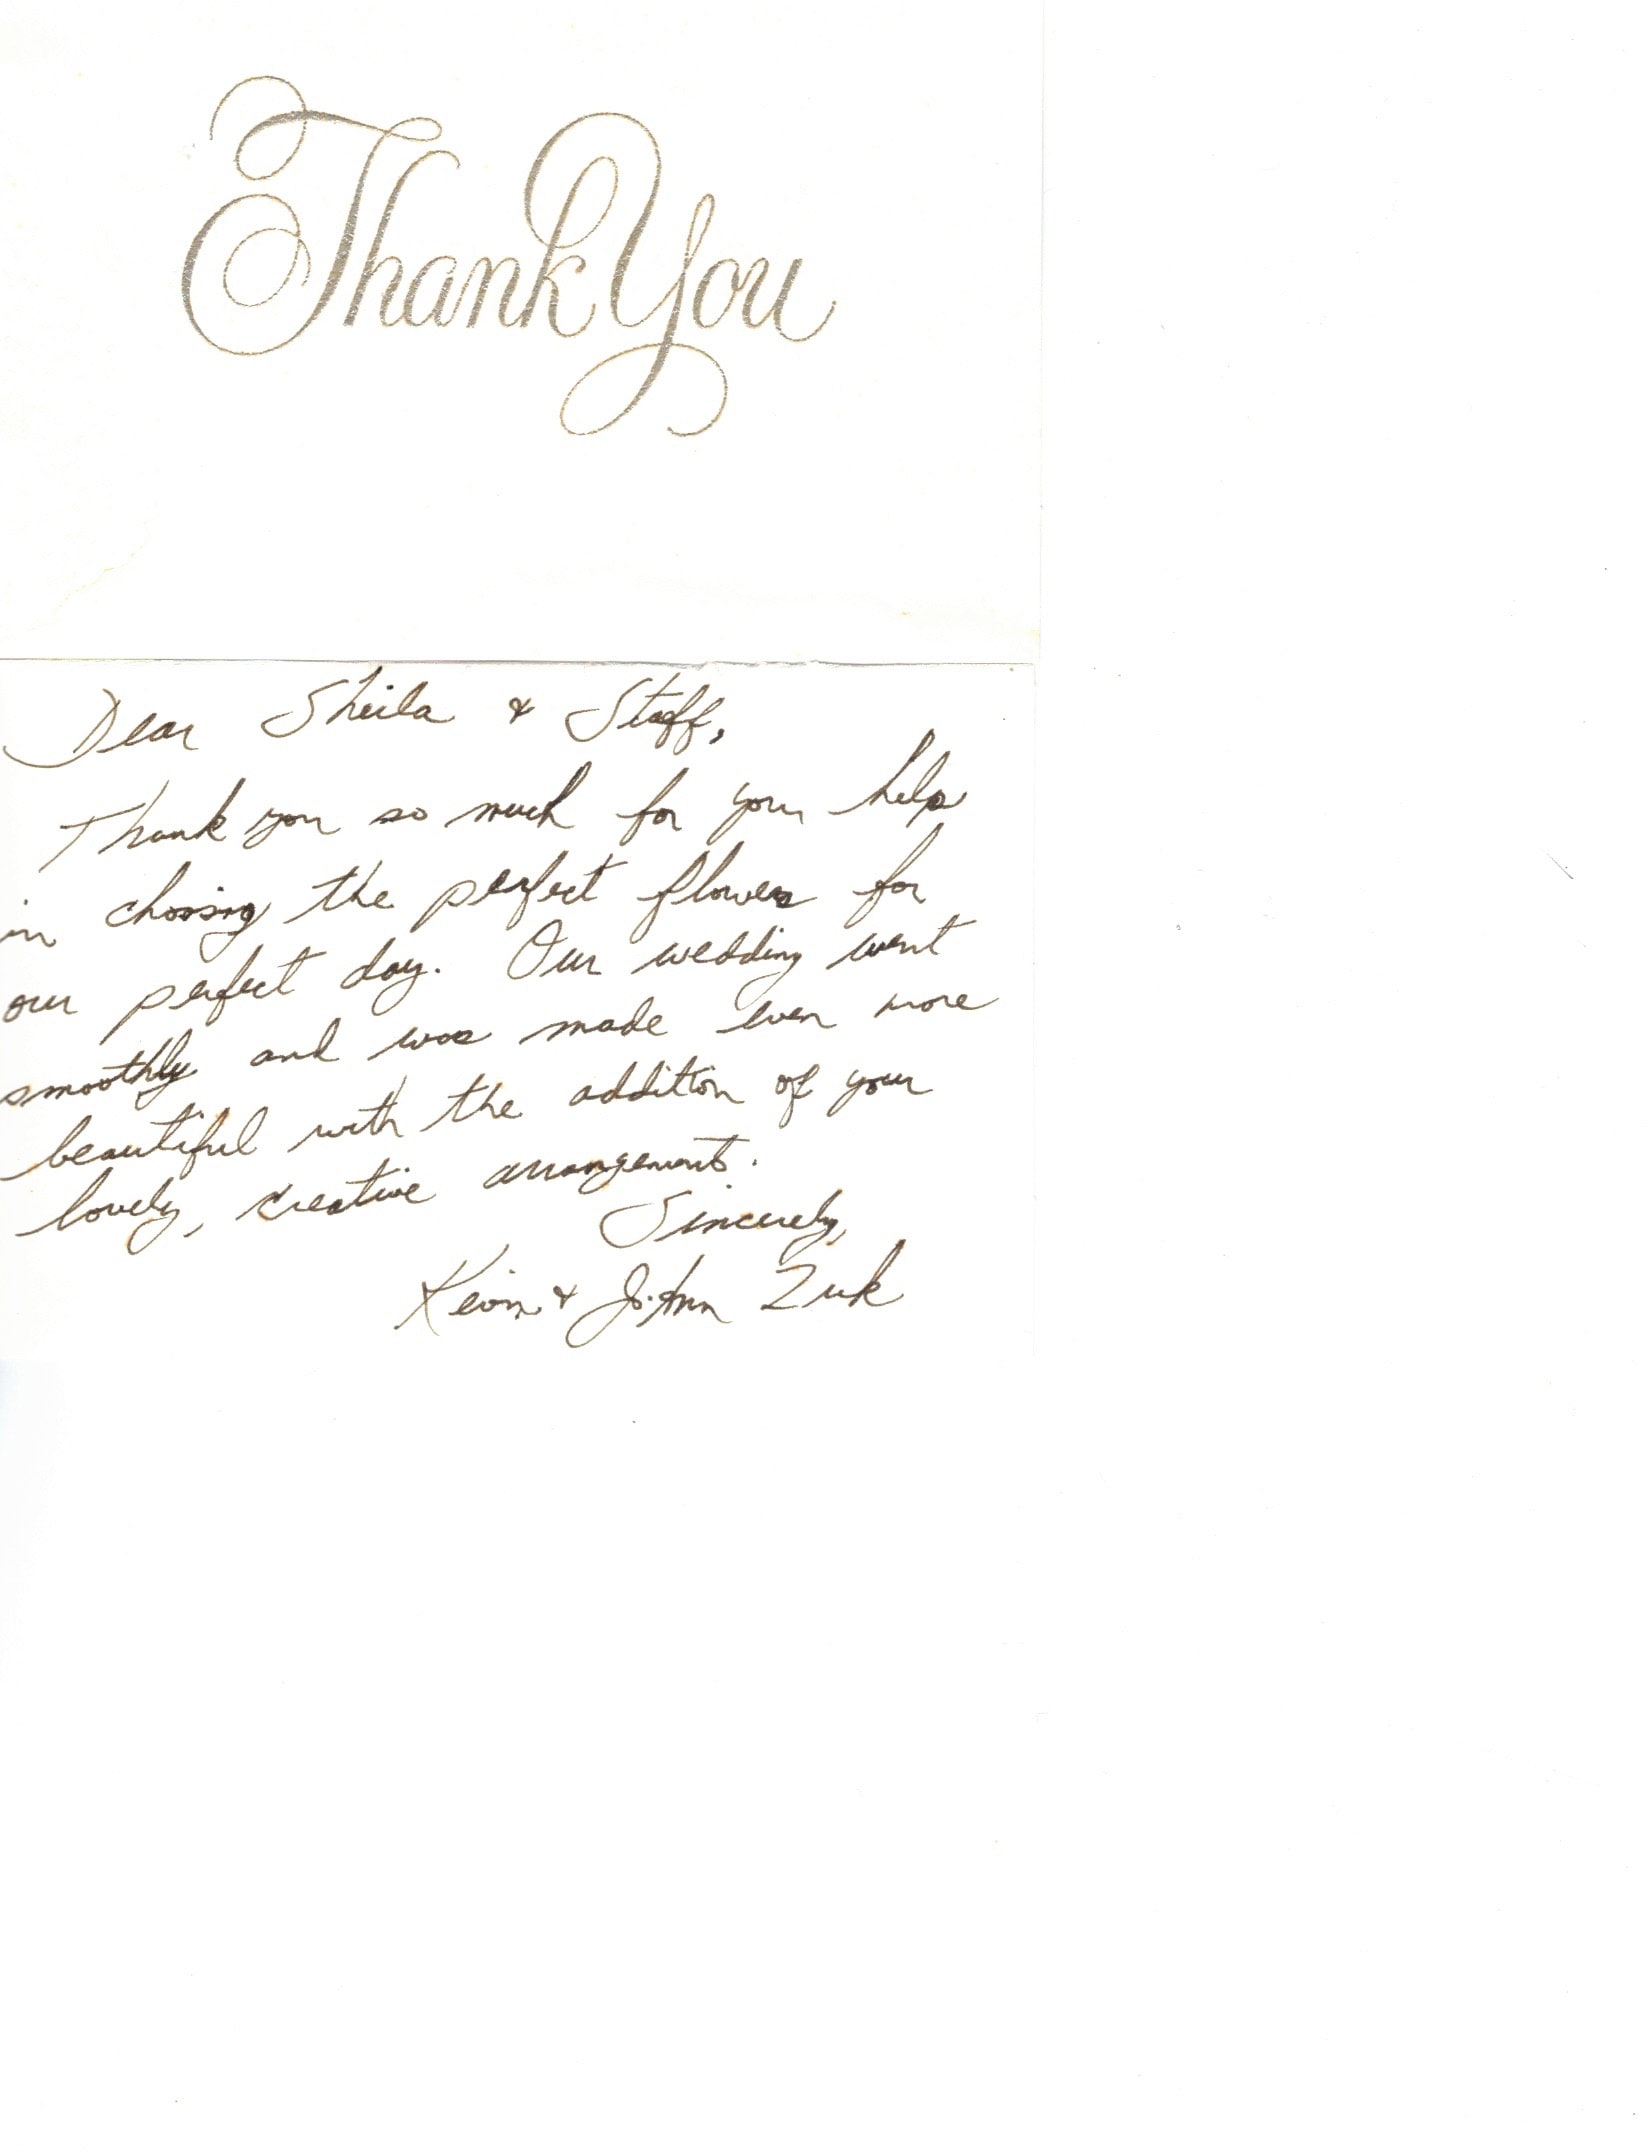 Thank You
Dear Sheila & Staff,
Thank you so much for your help
in choosing the perfect flowers for
our perfect day. Our wedding went
smoothly and was made even more
beautiful with the addition of your
lovely, creative arrangements.
Sincerely,
Kevin & Jo-Ann Zuk